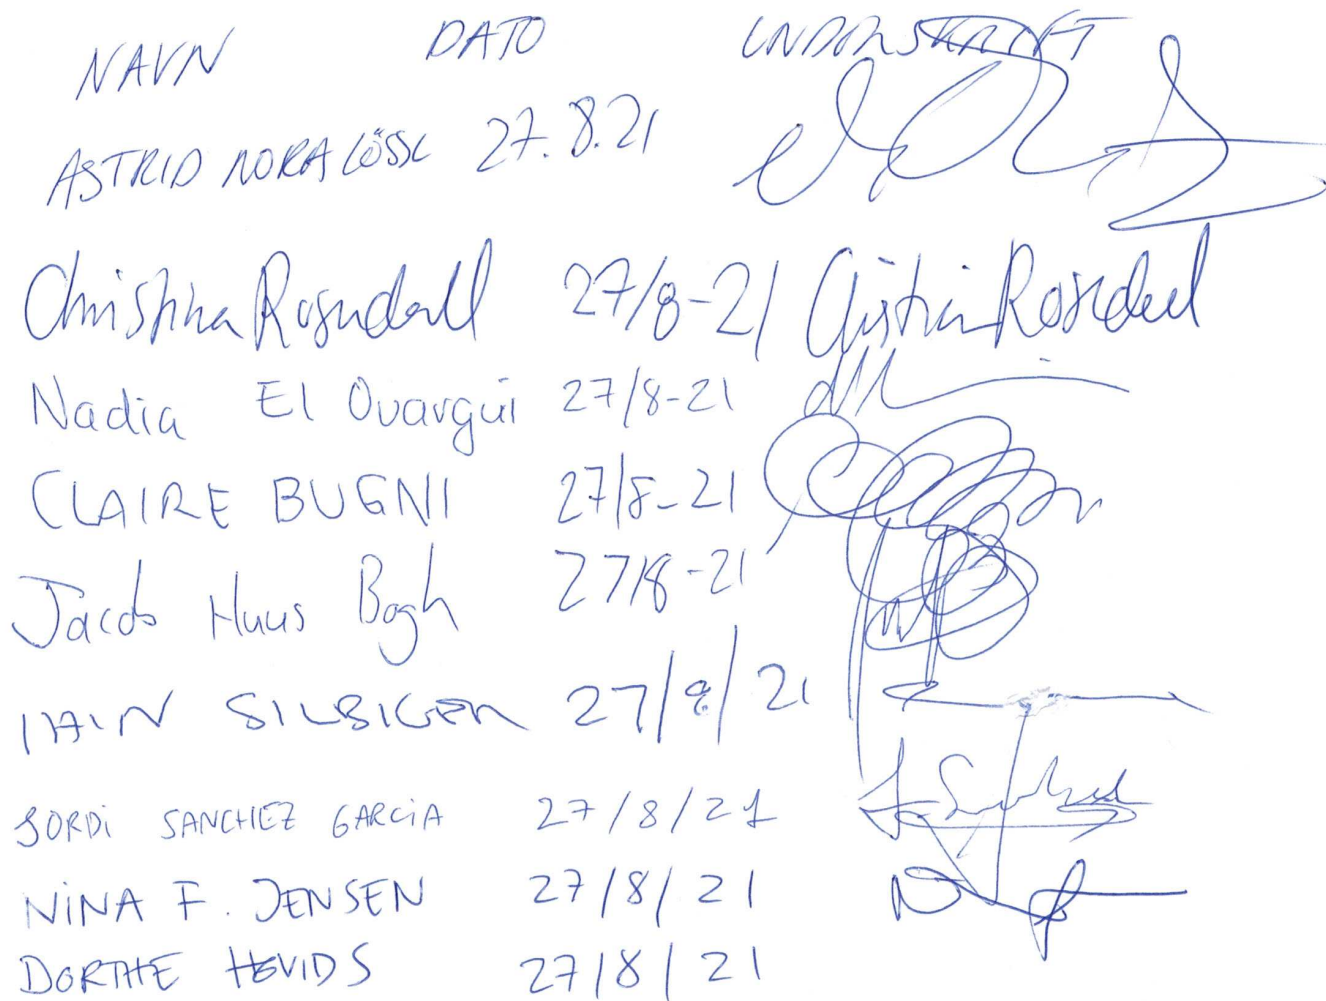 NAVN DATO UNDERSKRIFT
ASTRID NORA LÖSSL 27.8.21
Christina Rosendahl 27/8-21 Christina Rosendahl
Nadia El Ouargui 27/8-21
CLAIRE BUGNI 27/8-21
Jacob Huus Bagh 27/8-21
SILBIGER 27/8/21
JORDI SANCHEZ GARCIA 27/8/21
NINA F. JENSEN 27/8/21
DORTHE 27/8/21